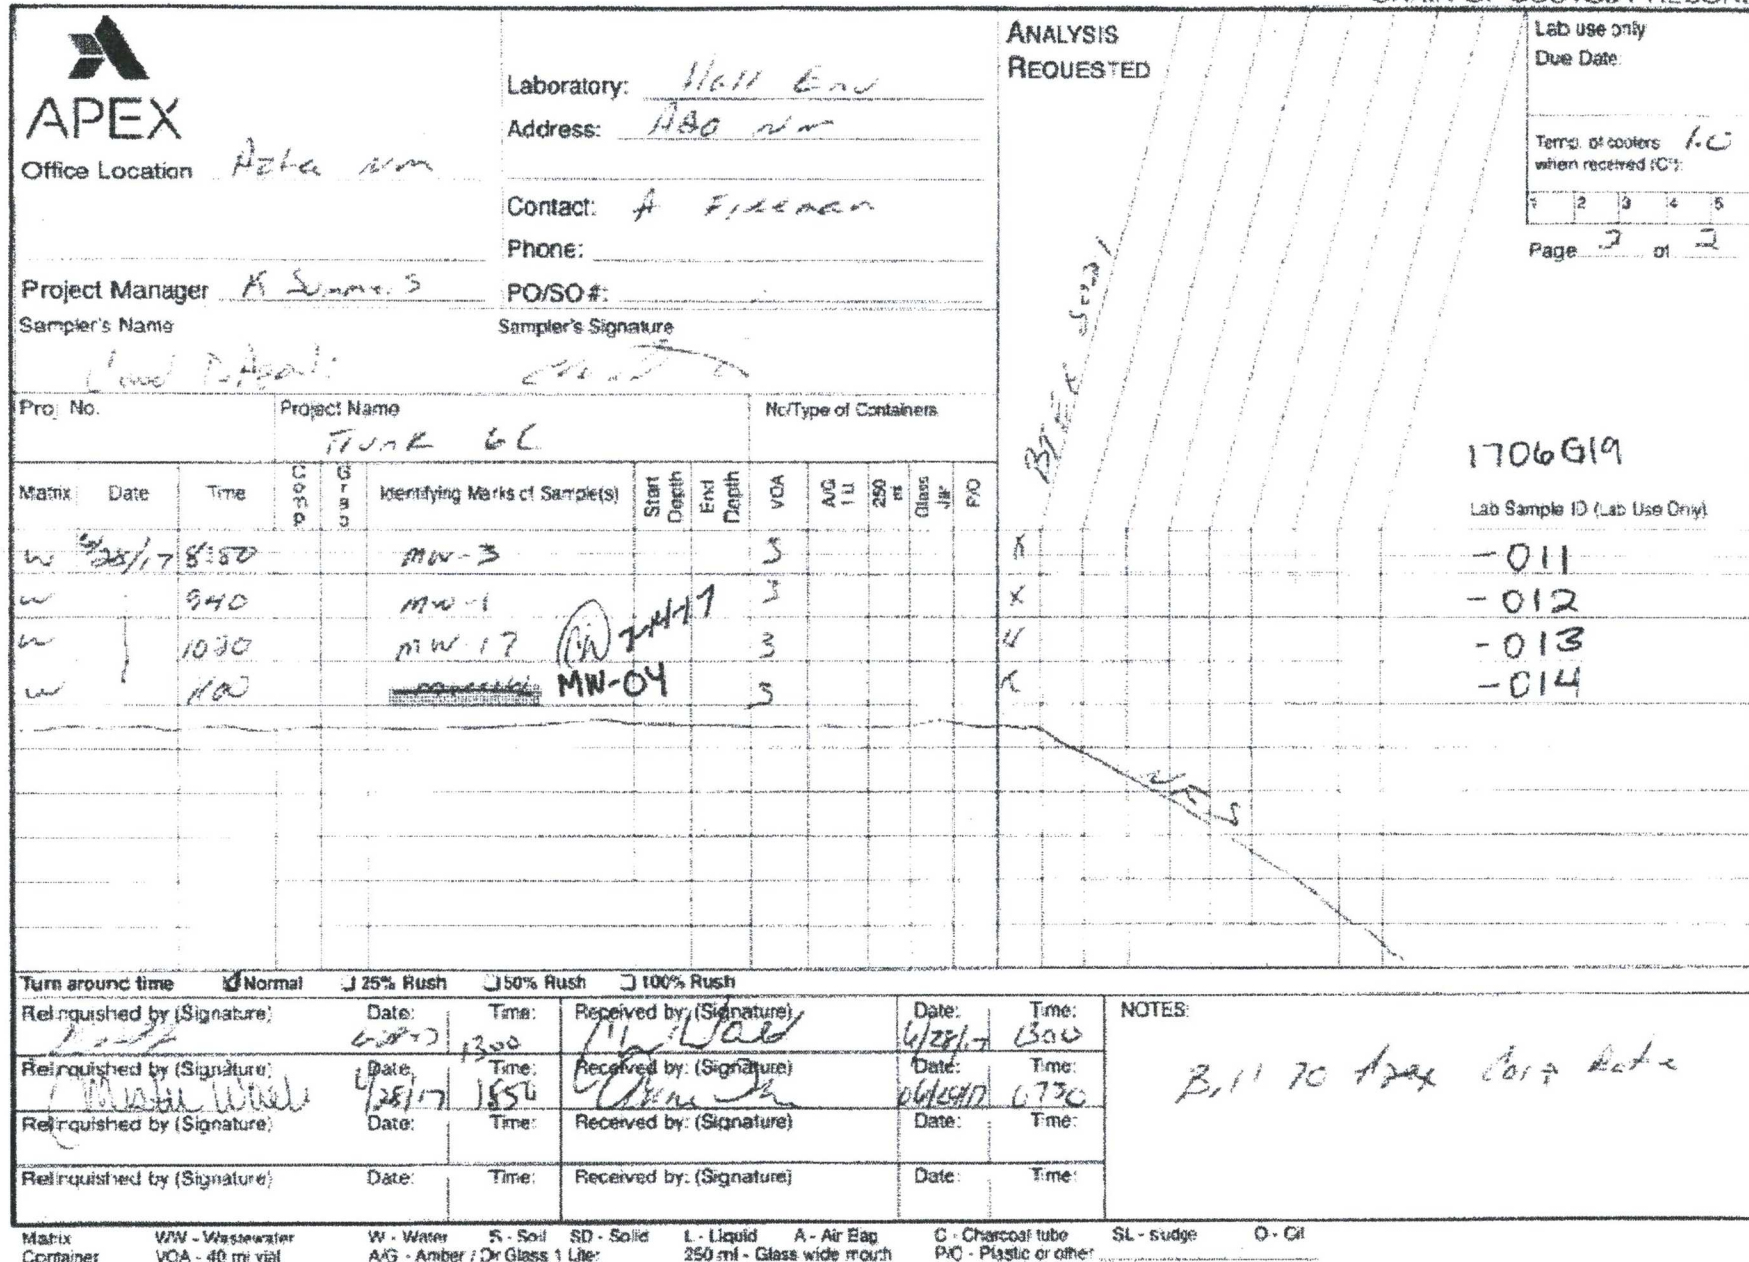 CHAIN OF CUSTODY RECORD
APEX
Office Location Aztec NM
Project Manager K Summers
Sampler's Name
Laboratory: Hall Env
Address: ABQ NM
Contact: A Freeman
Phone:
PO/SO #:
Sampler's Signature
ANALYSIS
REQUESTED
BTEX 8021
Lab use only
Due Date:
Temp. of coolers 1.0
when received (C°):
1 2 3 4 5
Page 2 of 2
Proj. No.
Project Name
Trunk 6C
No/Type of Containers
1706G19
Matrix Date Time Comp Grab Identifying Marks of Sample(s) Start Depth End Depth VOA A/G 1 Lt. 250 ml Glass Jar P/O Lab Sample ID (Lab Use Only)
W 6/28/17 8:50 MW-3 3 X -011
W 940 MW-1 3 X -012
W 1020 MW-17 3 X -013
W 1100 MW-04 3 X -014
Turn around time Normal 25% Rush 50% Rush 100% Rush
Relinquished by (Signature) Date: 6-28-17 Time: 1300 Received by: (Signature) Date: 6/28/17 Time: 1300
Relinquished by (Signature) Date: 6/28/17 Time: 1850 Received by: (Signature) Date: Time: 0730
Relinquished by (Signature) Date: Time: Received by: (Signature) Date: Time:
Relinquished by (Signature) Date: Time: Received by: (Signature) Date: Time:
NOTES:
Bill to Apex Corp Rate
Matrix WW - Wastewater W - Water S - Soil SD - Solid L - Liquid A - Air Bag C - Charcoal tube SL - sludge O - Oil
Container VOA - 40 ml vial A/G - Amber / Or Glass 1 Liter 250 ml - Glass wide mouth P/O - Plastic or other